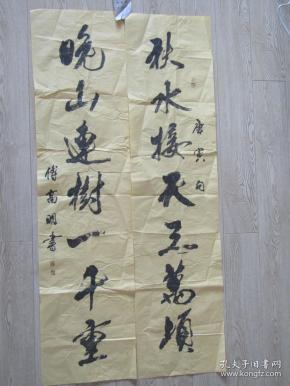 秋水接天三萬頃
唐寅句
晚山連樹一千重
傅高明書
孔夫子旧书网